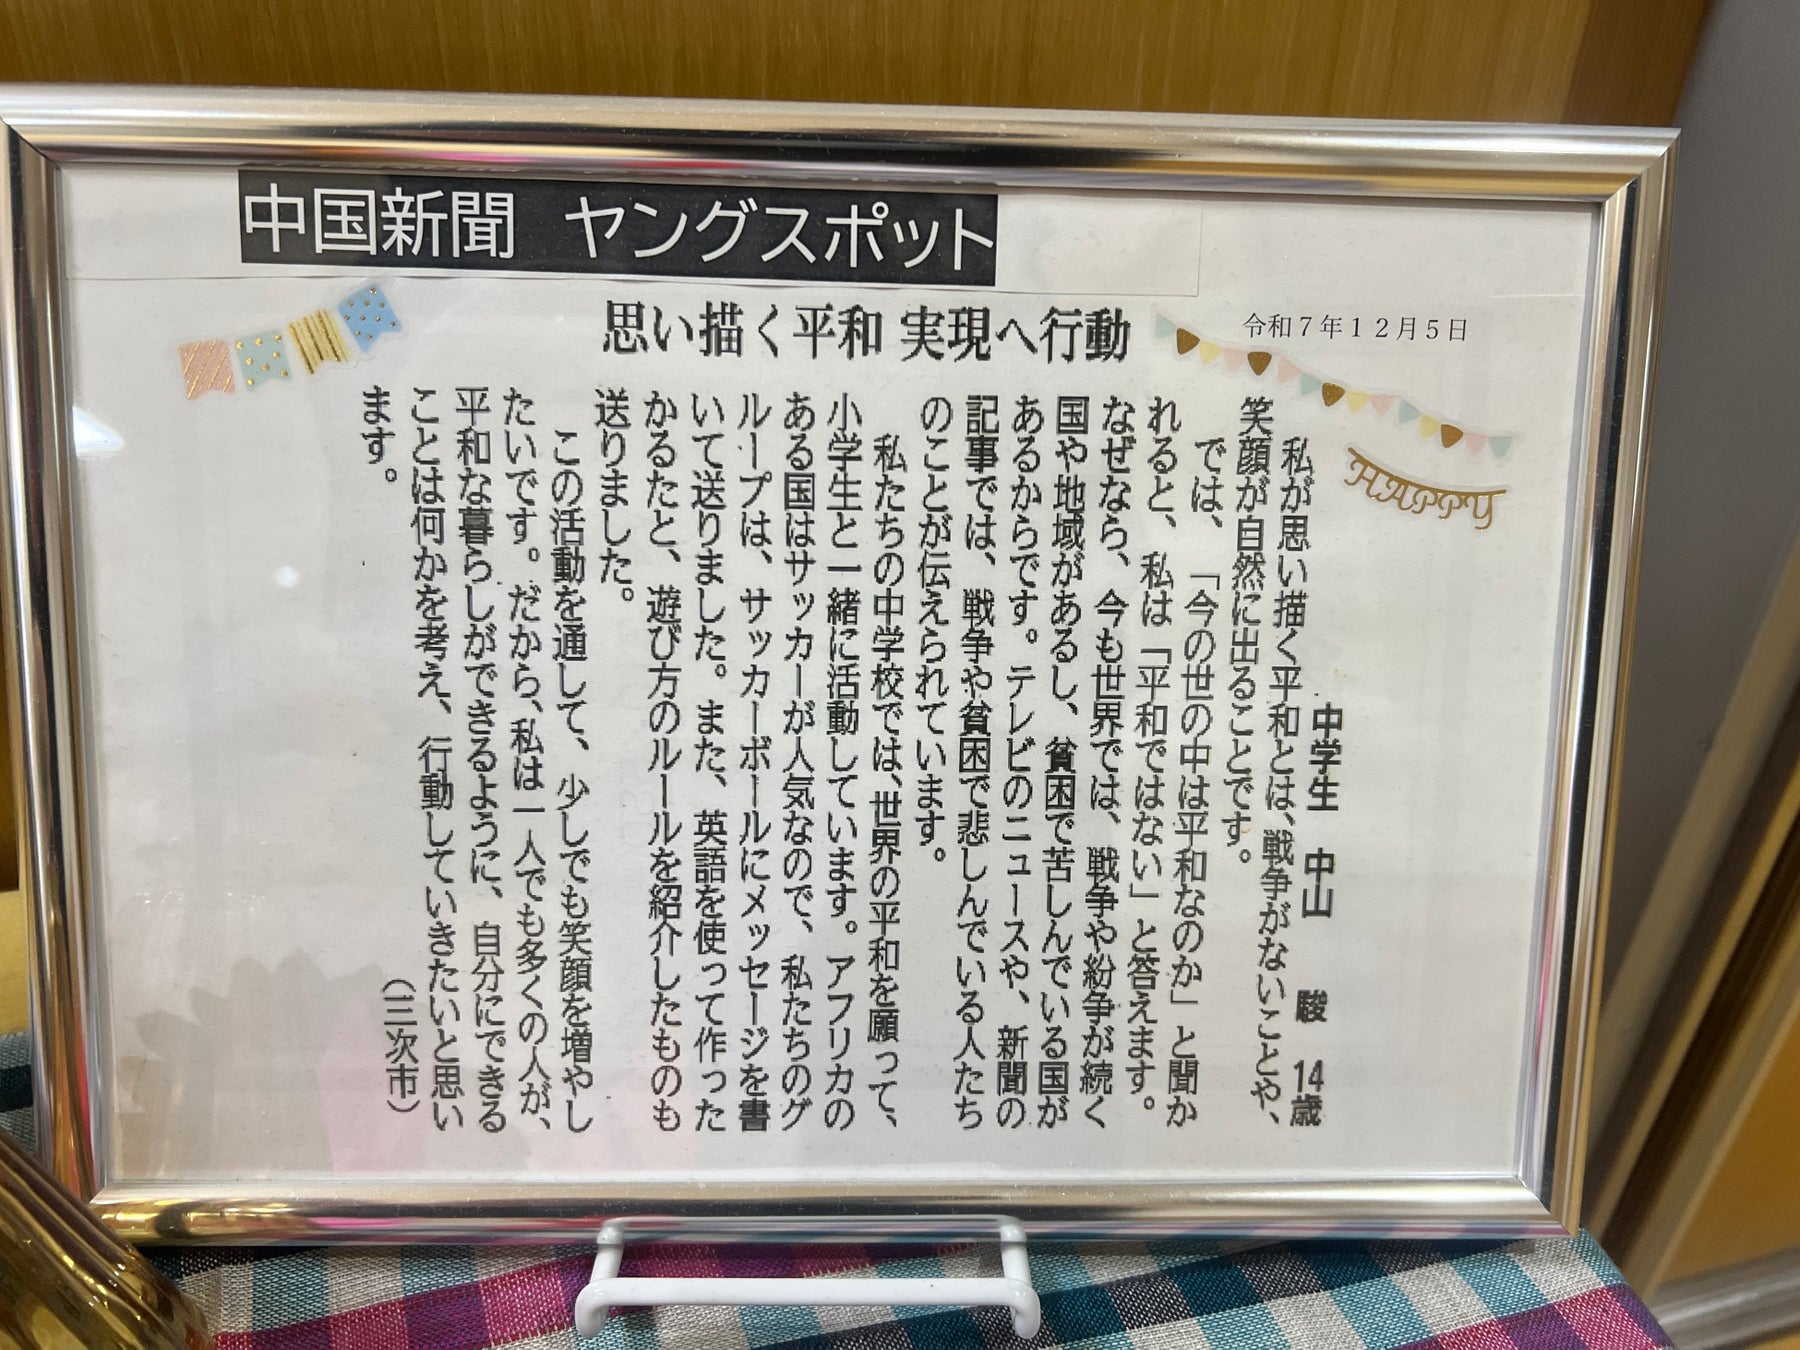 中国新聞　ヤングスポット
令和7年12月5日
思い描く平和 実現へ行動
中学生　中山　駿　14歳
　私が思い描く平和とは、戦争がないことや、
笑顔が自然に出ることです。
　では、「今の世の中は平和なのか」と聞か
れると、私は「平和ではない」と答えます。
なぜなら、今も世界では、戦争や紛争が続く
国や地域があるし、貧困で苦しんでいる国が
あるからです。テレビのニュースや、新聞の
記事では、戦争や貧困で悲しんでいる人たち
のことが伝えられています。
　私たちの中学校では、世界の平和を願って、
小学生と一緒に活動しています。アフリカの
ある国はサッカーが人気なので、私たちのグ
ループは、サッカーボールにメッセージを書
いて送りました。また、英語を使って作った
かるたと、遊び方のルールを紹介したものも
送りました。
　この活動を通して、少しでも笑顔を増やし
たいです。だから、私は一人でも多くの人が、
平和な暮らしができるように、自分にできる
ことは何かを考え、行動していきたいと思い
ます。
（三次市）
HAPPY